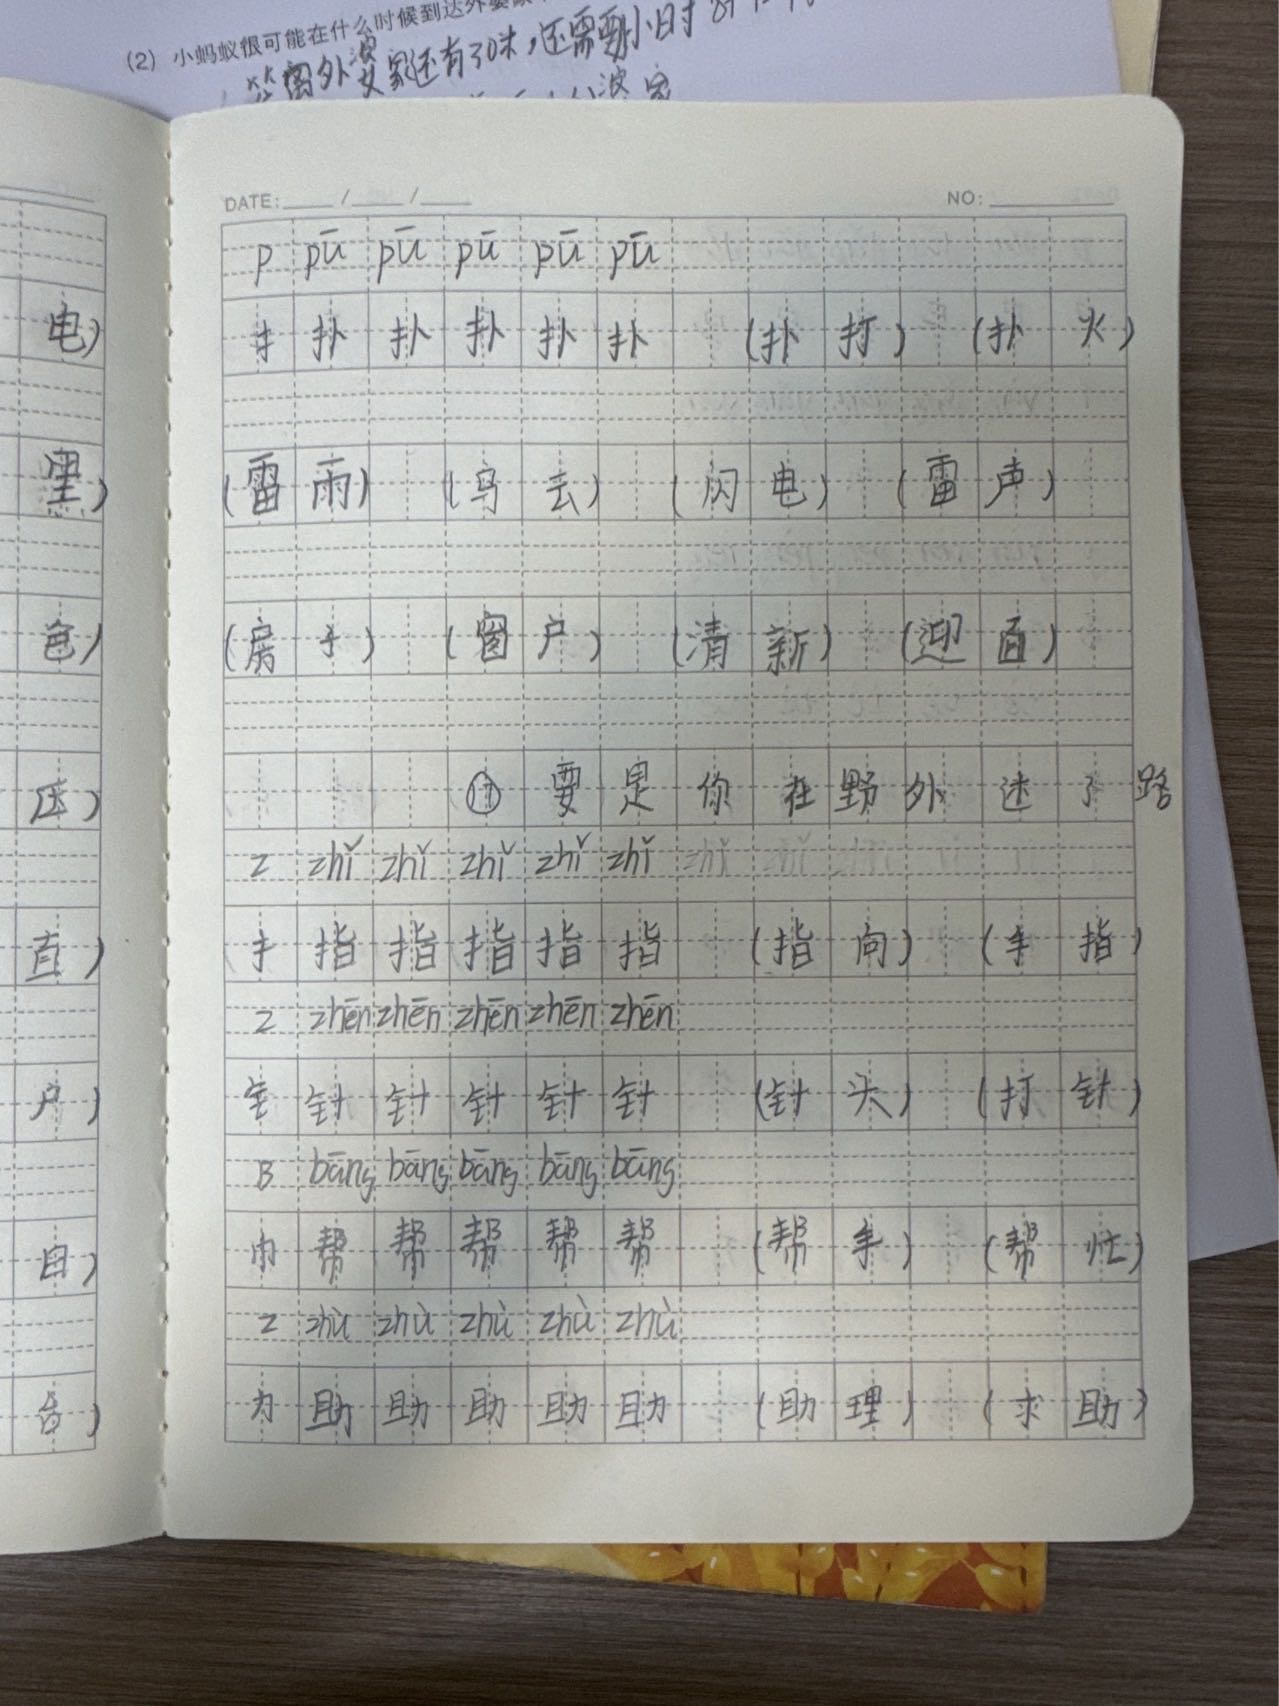 (2) 小蚂蚁很可能在什么时候到达外婆家
离外婆家还有30米,还需要小时
DATE: / /
NO:
p pū pū pū pū pū
扌 扑 扑 扑 扑 扑 (扑打) (扑火)
(雷雨) (乌云) (闪电) (雷声)
(房子) (窗户) (清新) (迎面)
⑰ 要是你在野外迷了路
z zhǐ zhǐ zhǐ zhǐ zhǐ
扌 指 指 指 指 指 (指向) (手指)
z zhēn zhēn zhēn zhēn zhēn
钅 针 针 针 针 针 (针头) (打针)
B bāng bāng bāng bāng bāng
巾 帮 帮 帮 帮 帮 (帮手) (帮忙)
z zhù zhù zhù zhù zhù
力 助 助 助 助 助 (助理) (求助)
电)
黑)
色)
压)
直)
户)
自)
台)